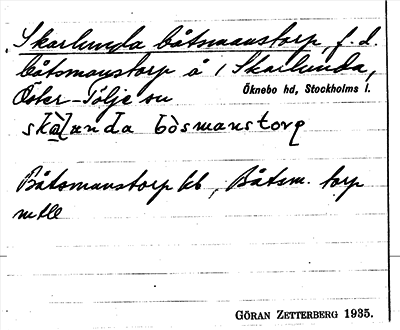 Skarlunda båtsmanstorp, f.d.
båtsmanstorp å 1 Skarlunda,
Öster-Tälje sn
Öknebo hd, Stockholms l.
skàḷunda bòsmanstorp
Båtsmanstorp kb, Båtsm. torp
mtll
GÖRAN ZETTERBERG 1935.